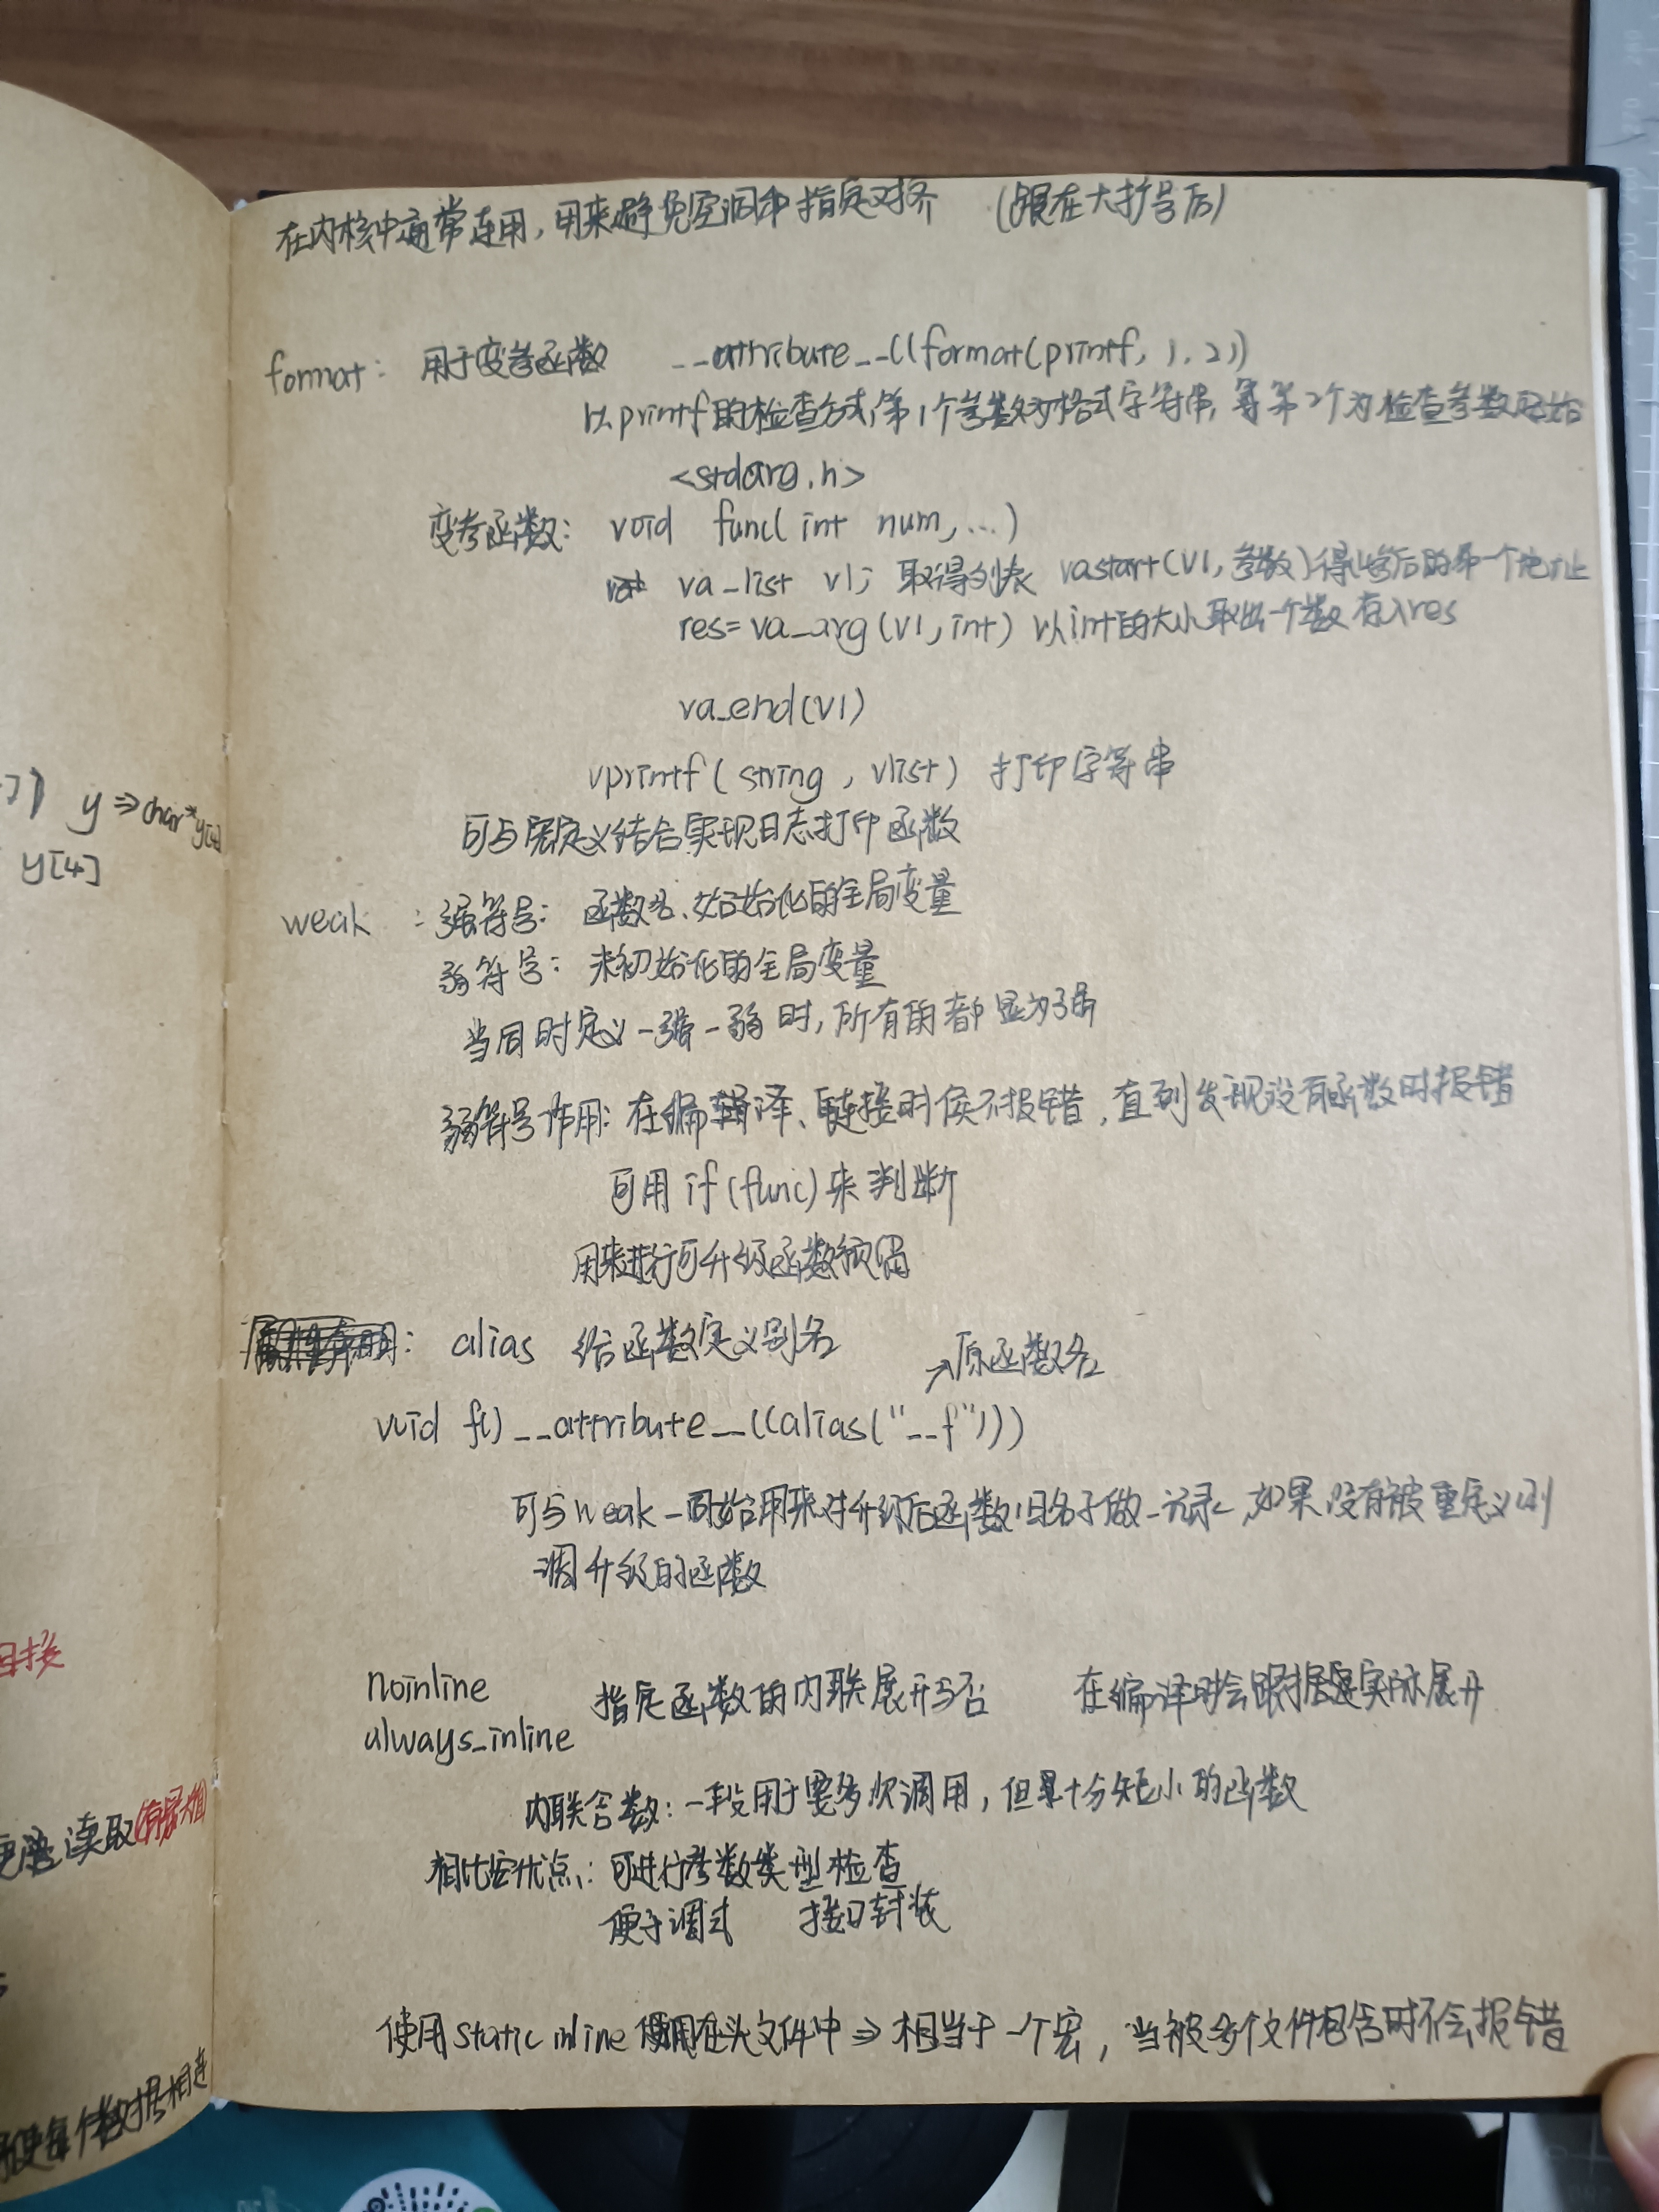 在内核中通常连用,用来避免空洞和指定对齐 (跟在大扩号后)
format: 用于变参函数 __attribute__((format(printf, 1, 2))
以printf的检查方式,第1个参数为格式字符串, 第2个为检查参数开始
<stdarg.h>
变参函数: void func( int num, ...)
va_list vl; 取得列表 vastart(vl, 参数)得此参后的第一个地址
res = va_arg (vl, int) 以int的大小取出一个数 存入res
va_end(vl)
vprintf( string , vlist) 打印字符串
可与宏定义结合实现日志打印函数
weak : 强符号: 函数名、始始化的全局变量
弱符号: 未初始化的全局变量
当同时定义一强一弱时, 所有的都显为强
弱符号作用: 在编译、链接时侯不报错, 直到发现没有函数时报错
可用 if (func) 来判断
用来进行可升级函数预留
: alias 给函数定义别名
→原函数名
void f() __attribute__((alias("__f")))
可与weak一同始用来对升级后函数旧名子做一记录, 如果没有被重定义则
调升级的函数
noinline
指定函数的内联展开与否 在编译时会跟据实际展开
always_inline
内联含数: 一段用于要多次调用, 但是十分短小的函数
相比宏优点: 可进行参数类型检查
便于调式 接口封装
使用static inline 使用在头文件中 ⇒ 相当于一个宏, 当被多个文件包含时不会报错
y ⇒ char* y[4]
y[4]
读取
每个数据相连